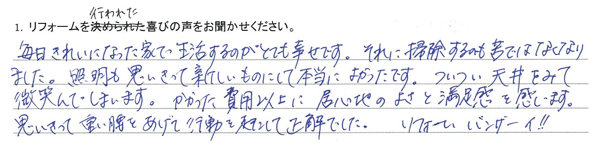 行われた
1. リフォームを決められた喜びの声をお聞かせください。
毎日きれいになった家で生活するのがとても幸せです。それに掃除するのも苦ではなくなり
ました。照明も思いきって新しいものにして本当によかったです。ついつい天井をみて
微笑んでしまいます。かかった費用以上に居心地のよさと満足感を感じます。
思いきって重い腰をあげて行動を起こして正解でした。 リフォームバンザーイ!!